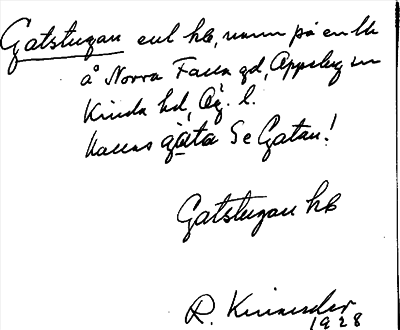 Gatstugan enl hb, namn på en lht
å Norra Falla gd, Oppeby sn
Kinda hd, Ög. l.
Kallas gáta Se Gatan!
Gatstugan hb
R. Kinander
1928